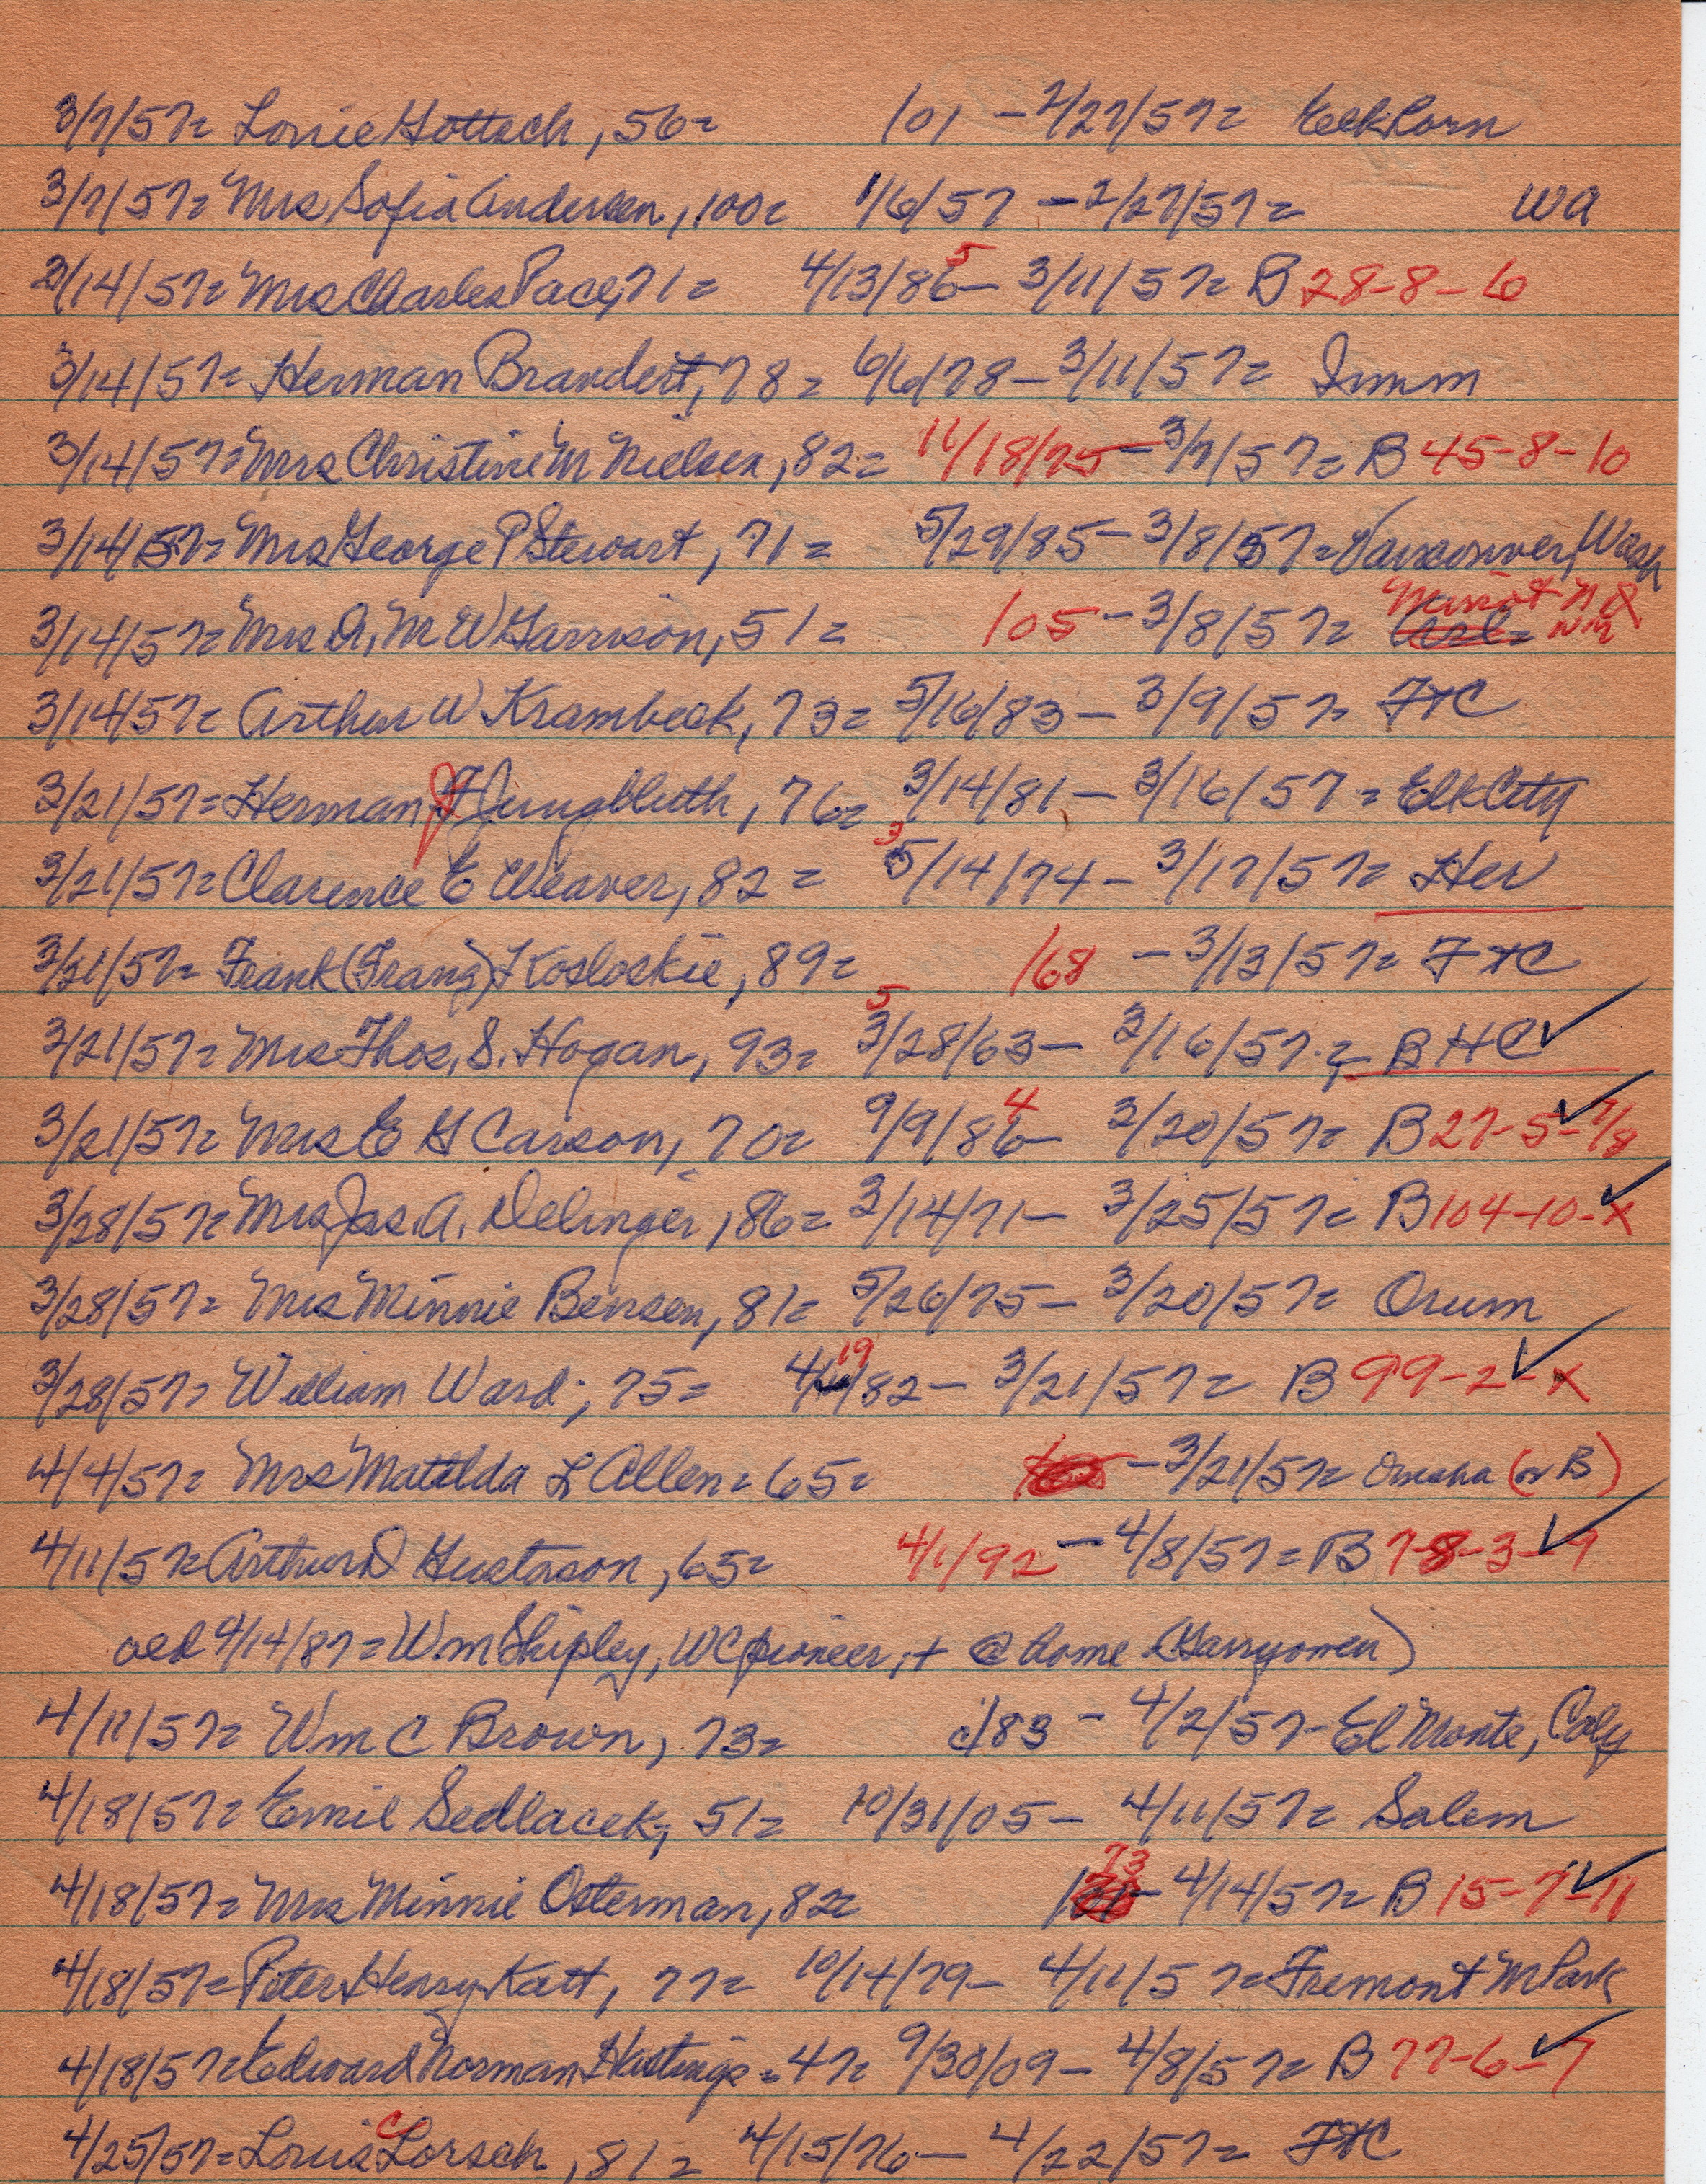 3/7/57= Louie Gottsch, 56= 101 - 2/27/57= Eeckhorn
3/7/57= Mrs Sofia Andersen, 100= 1/6/57 - 2/27/57= WA
3/14/57= Mrs Charles Pace, 71= 4/13/86 5 - 3/11/57= B 28-8-6
3/14/57= Herman Brandert, 78= 6/6/78 - 3/11/57= Imm
3/14/57= Mrs Christine M Nielsen, 82= 11/18/75 - 3/7/57= B 45-8-10
3/14/57= Mrs George P Stewart, 71= 5/29/85 - 3/8/57= Vancouver, Wash
3/14/57= Mrs A, M W Garrison, 51= 105 - 3/8/57= Minot ND
3/14/57= Arthur W Krambeck, 73= 5/16/83 - 3/9/57= FtC
3/21/57= Herman J Jungbluth, 76= 3/14/81 - 3/16/57= Elk City
3/21/57= Clarence E Weaver, 82= 3 5/14/74 - 3/17/57= Her
3/21/57= Frank (Franz) Kosloskie, 89= 168 - 3/13/57= FtC
3/21/57= Mrs Thos. S. Hogan, 93= 5 3/28/63 - 3/16/57= BHC ✓
3/21/57= Mrs E G Carson, 70= 9/9/86 4 - 3/20/57= B 27-5-7/8 ✓
3/28/57= Mrs Jas. A. Delinger, 86= 3/14/71 - 3/25/57= B 104-10-x ✓
3/28/57= Mrs Minnie Bensen, 81= 5/26/75 - 3/20/57= Orum
3/28/57= William Ward, 75= 4/19/82 - 3/21/57= B 99-2-x ✓
4/4/57= Mrs Matilda L Allen= 65= - 3/21/57= Omaha (or B)
4/11/57= Arthur D Gustason, 65= 4/1/92 - 4/8/57= B 78-3-9 ✓
old 4/14/87= Wm Shipley, WC pioneer, + @ home (Garryowen)
4/11/57= Wm C Brown, 73= c/83 - 4/2/57- El Monte, Caly
4/18/57= Emil Sedlacek, 51= 10/31/05 - 4/11/57= Salem
4/18/57= Mrs Minnie Osterman, 82= 73 - 4/14/57= B 15-7-11 ✓
4/18/57= Peter Henry Katt, 77= 10/14/79 - 4/11/57= Fremont M Park
4/18/57= Edward Norman Hastings= 47= 9/30/09 - 4/8/57= B 77-6-7 ✓
4/25/57= Louis C Lorsch, 81= 4/15/76 - 4/22/57= FtC